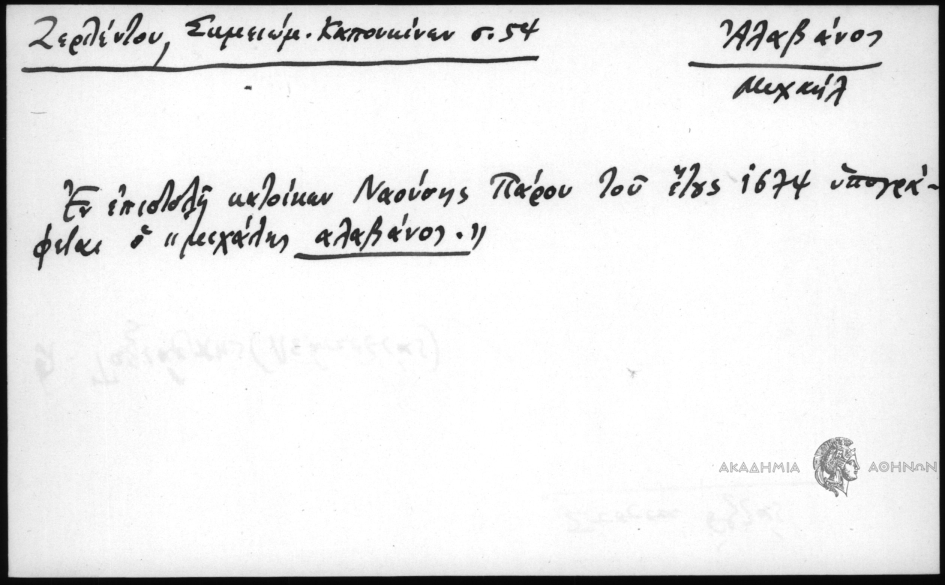 Ζερλέντου, Σημειώμ. Καπουκίνων σ. 54
Ἀλαβάνος
Μιχαήλ
Ἐν ἐπιστολῇ κατοίκων Ναούσης Πάρου τοῦ ἔτους 1674 ὑπογρά-
φεται ὁ "μιχάλης αλαβάνος."
ΑΚΑΔΗΜΙΑ ΑΘΗΝΩΝ